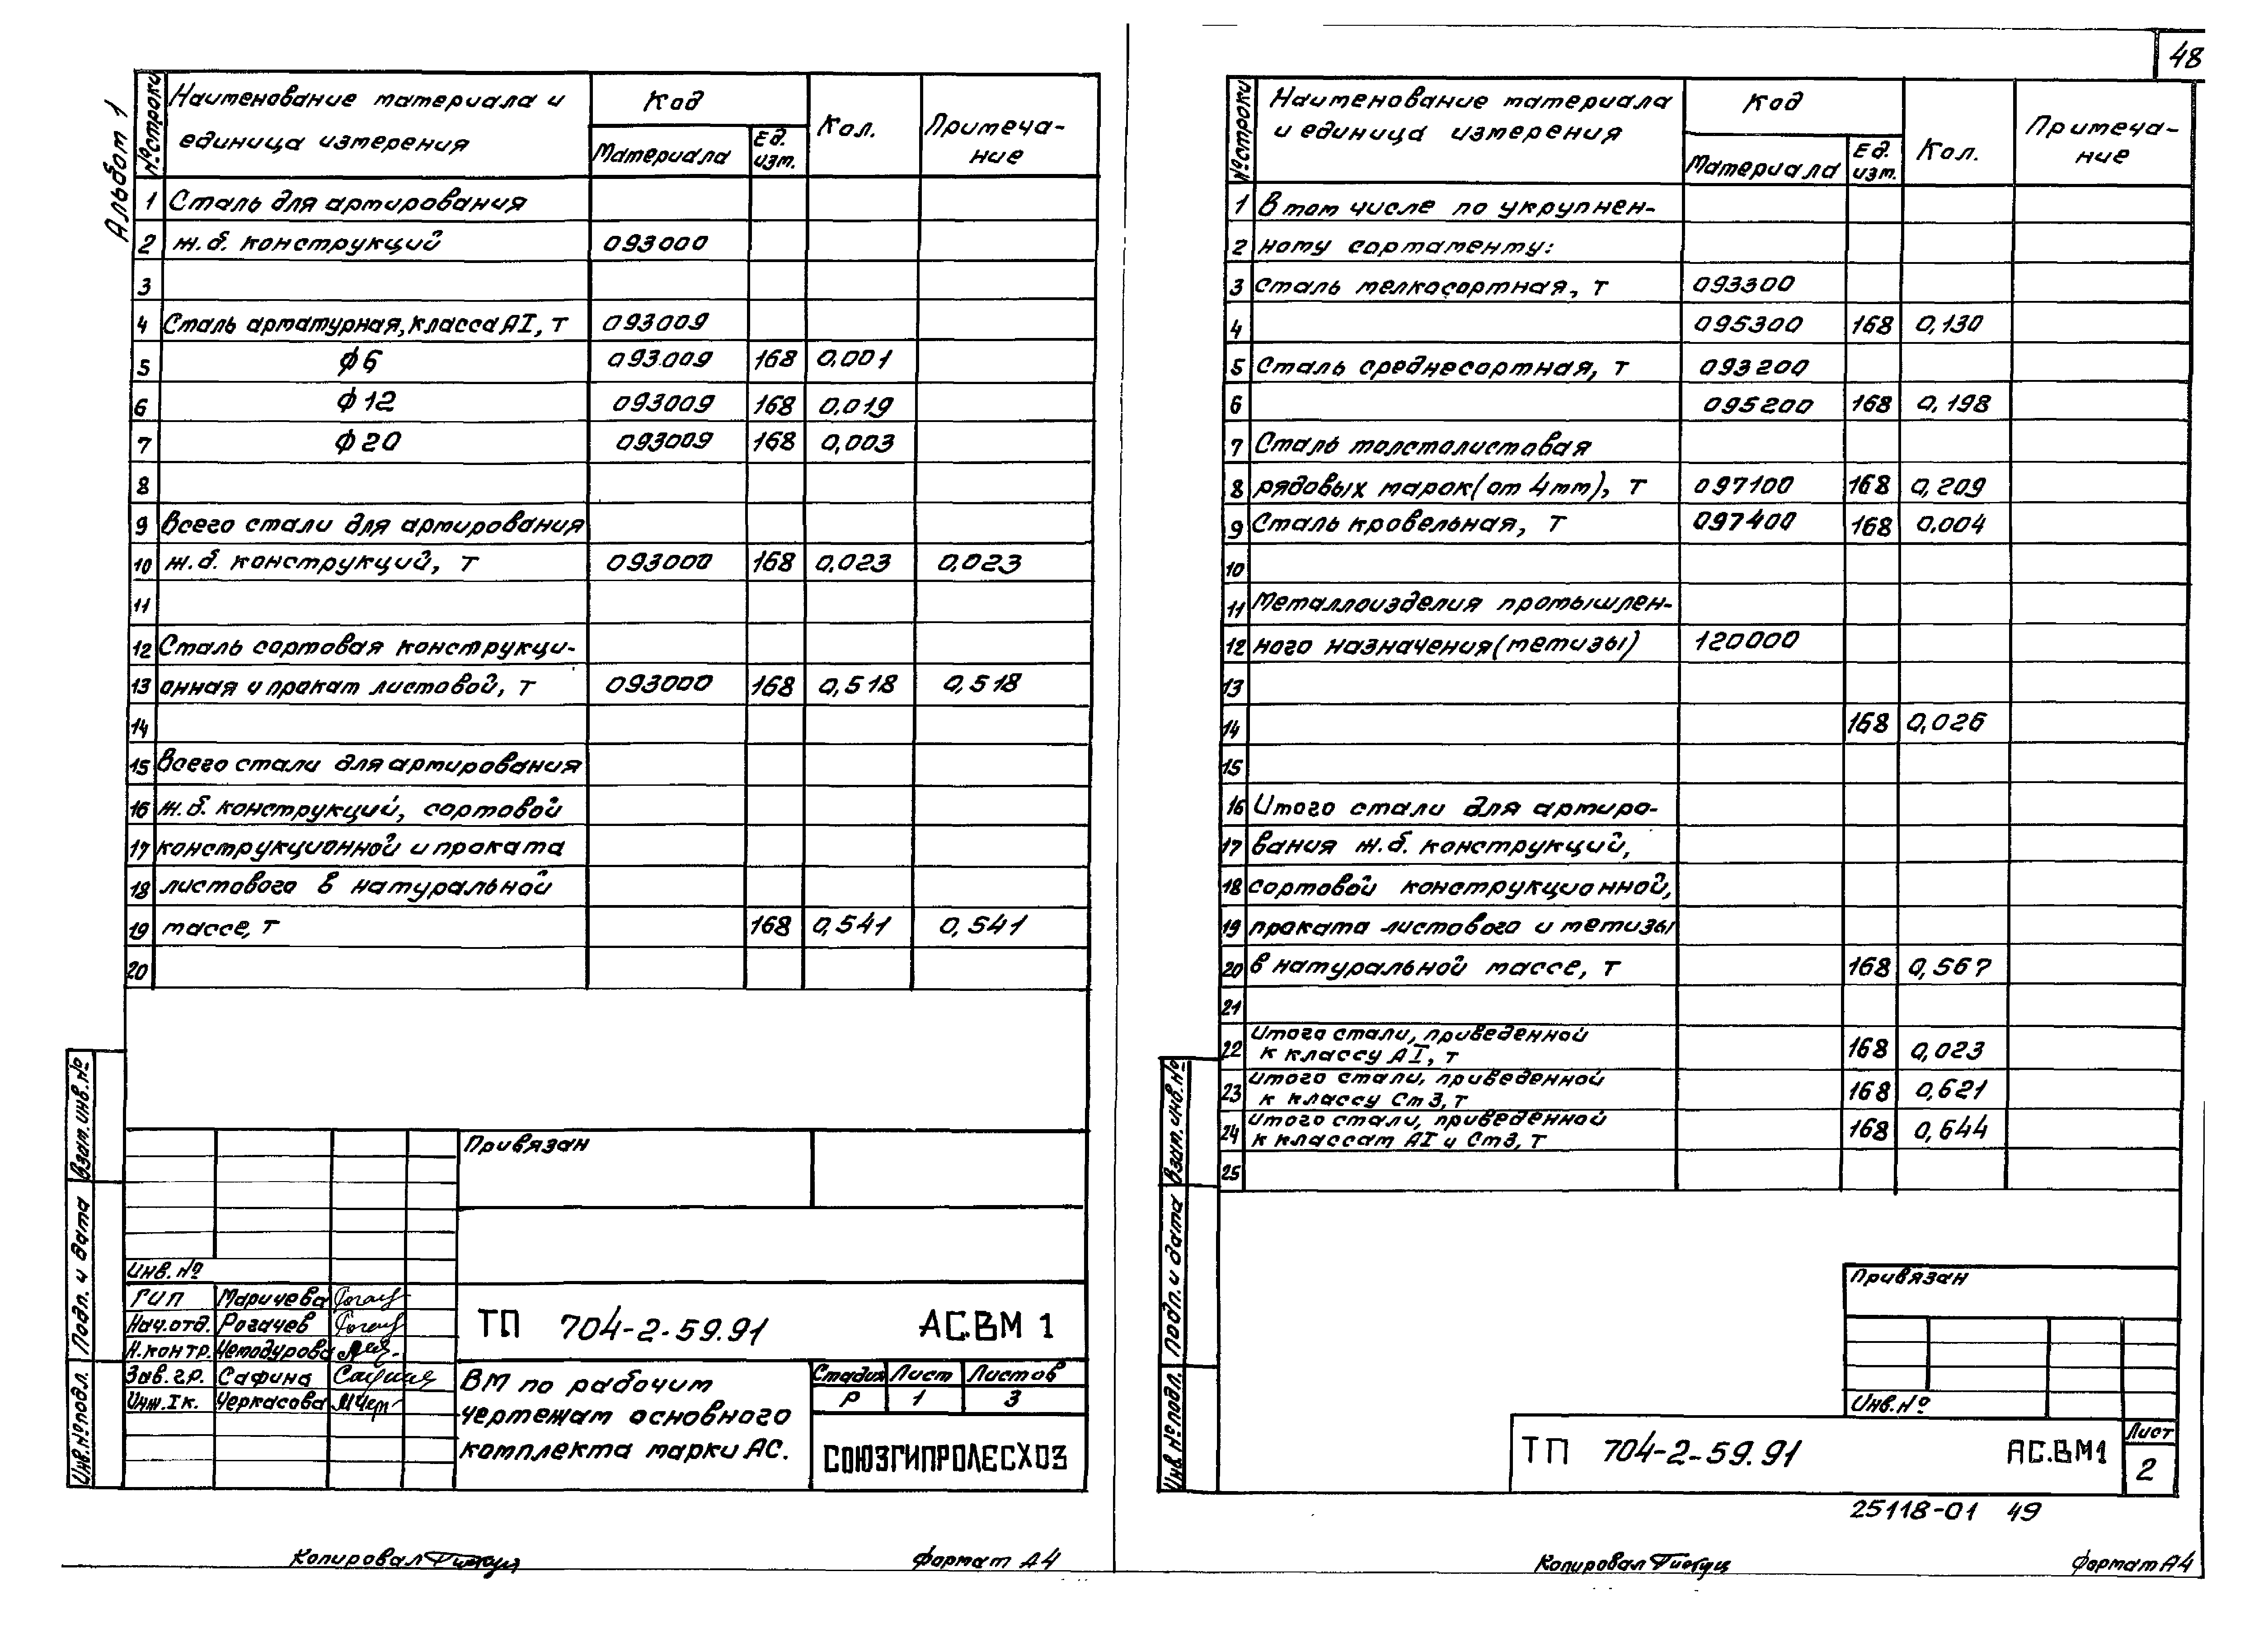 48
Альбом 1
№ строки | Наименование материала и единица измерения | Код | Кол. | Примеча-ние
Материала | Ед. изм.
1 Сталь для армирования
2 ж.б. конструкций 093000
3
4 Сталь арматурная, класса АI, т 093009
5 ф6 093009 168 0,001
6 ф12 093009 168 0,019
7 ф20 093009 168 0,003
8
9 Всего стали для армирования
10 ж.б. конструкций, т 093000 168 0,023 0,023
11
12 Сталь сортовая конструкци-
13 онная и прокат листовой, т 093000 168 0,518 0,518
14
15 Всего стали для армирования
16 ж.б. конструкций, сортовой
17 конструкционной и проката
18 листового в натуральной
19 массе, т 168 0,541 0,541
20
Взам. инв. №
Подп. и дата
Инв. № подл.
Привязан
Инв. №
ГИП Маричева
Нач. отд. Рогачев
Н. контр. Чемодурова
Зав. гр. Сафина
Инж. I к. Черкасова
ТП 704-2-59.91 АС.ВМ 1
ВМ по рабочим
чертежам основного
комплекта марки АС.
Стадия Лист Листов
Р 1 3
СОЮЗГИПРОЛЕСХОЗ
Копировал
Формат А4
№ строки | Наименование материала и единица измерения | Код | Кол. | Примеча-ние
Материала | Ед. изм.
1 В том числе по укрупнен-
2 ному сортаменту:
3 Сталь мелкосортная, т 093300
4 095300 168 0,130
5 Сталь среднесортная, т 093200
6 095200 168 0,198
7 Сталь толстолистовая
8 рядовых марок (от 4мм), т 097100 168 0,209
9 Сталь кровельная, т 097400 168 0,004
10
11 Металлоизделия промышлен-
12 ного назначения (метизы) 120000
13
14 168 0,026
15
16 Итого стали для армиро-
17 вания ж.б. конструкций,
18 сортовой конструкционной,
19 проката листового и метизы
20 в натуральной массе, т 168 0,567
21
22 Итого стали, приведенной
к классу АI, т 168 0,023
23 Итого стали, приведенной
к классу Ст3, т 168 0,621
24 Итого стали, приведенной
к классам АI и Ст3, т 168 0,644
25
Взам. инв. №
Подп. и дата
Инв. № подл.
Привязан
Инв. №
ТП 704-2-59.91 АС.ВМ1
Лист
2
25118-01 49
Копировал
Формат А4